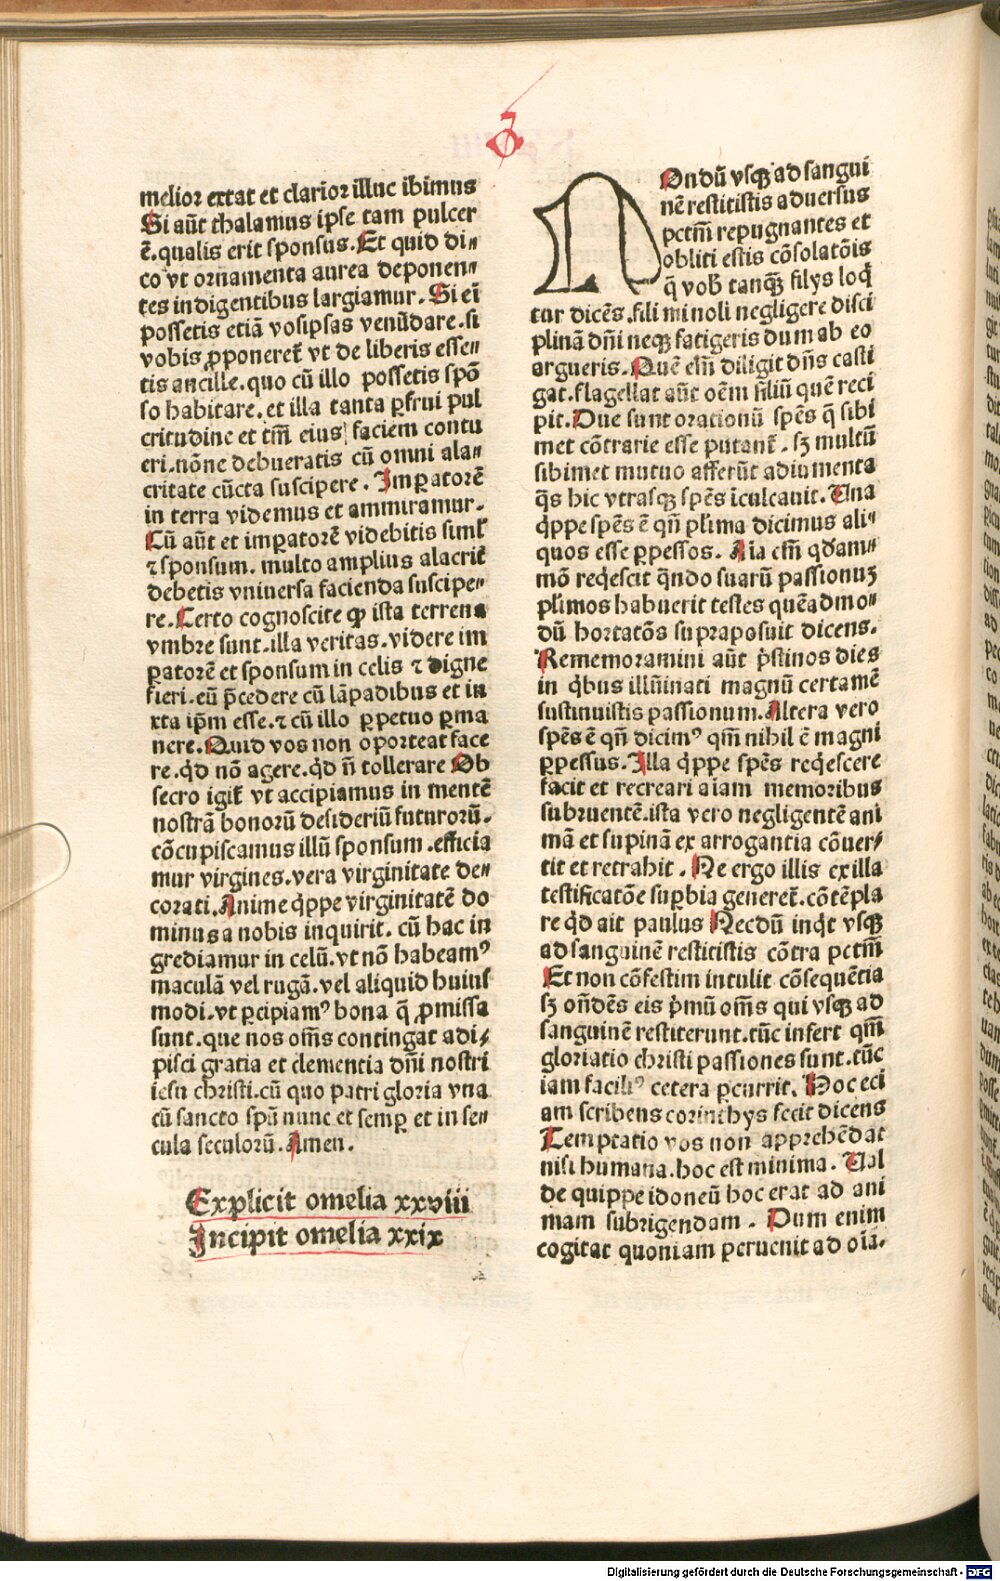 melior extat et clarior illuc ibimus
Si aūt thalamus ipse tam pulcer
ē.qualis erit sponsus.Et quid di⸗
co vt ornamenta aurea deponen⸗
tes indigentibus largiamur.Si ei
possetis etiā vosipsas venūdare.si
vobis ꝓponeret̄ vt de liberis esse⸗
tis ancille.quo cū illo possetis spō
so habitare.et illa tanta ꝑfrui pul
critudine et tm̄ eius faciem contu
eri.nōne debueratis cū omni ala⸗
critate cūcta suscipere. Imꝑatorē
in terra videmus et ammiramur.
Cū aūt et imꝑatorē videbitis siml̄
⁊ sponsum. multo amplius alacrit̄
debetis vniuersa facienda suscipe⸗
re.Certo cognoscite ꝙ ista terrena
vmbre sunt.illa veritas.videre im
ꝑatorē et sponsum in celis ⁊ digne
fieri.eū p̄cedere cū lāpadibus et iu
xta ip̄m esse.⁊ cū illo ꝑpetuo ꝑma
nere.Quid vos non oporteat face
re.qd̄ nō agere.qd̄ n̄ tollerare Ob
secro igit̄ vt accipiamus in mentē
nostrā bonorū desideriū futurorū.
cōcupiscamus illū sponsum.efficia
mur virgines.vera virginitate de⸗
corati.Anime q̇ppe virginitatē do
minus a nobis inquirit. cū hac in
grediamur in celū.vt nō habeamꝰ
maculā vel rugā.vel aliquid huius
modi.vt ꝑcipiamꝰ bona q̄ ꝓmissa
sunt.que nos om̄s contingat adi⸗
pisci gratia et clementia dn̄i nostri
iesu christi.cū quo patri gloria vna
cū sancto spū nunc et semꝑ et in se⸗
cula seculorū.Amen.
Explicit omelia xxviii
Incipit omelia xxix
NOndū vsqꝫ ad sangui
nē restitistis aduersus
pctm̄ repugnantes et
obliti estis cōsolatōis
q̄ vob̄ tanqꝫ filys loq̄
tur dicēs.fili mi noli negligere disci
plinā dn̄i neqꝫ fatigeris dum ab eo
argueris.Quē em̄ diligit dn̄s casti
gat.flagellat aūt oēm filiū quē reci
pit.Due sunt orationū spēs q̄ sibi
met cōtrarie esse putant̄. sꝫ multū
sibimet mutuo afferūt adiumenta
q̄s hic vtrasqꝫ spēs īculcauit.Una
q̇ppe spēs ē qn̄ pl̄ima dicimus ali⸗
quos esse ꝑpessos. Aīa em̄ qd̄am⸗
mō req̇escit qn̄do suarū passionuꝫ
pl̄imos habuerit testes quēadmo⸗
dū hortatōs supraposuit dicens.
Rememoramini aūt p̄stinos dies
in q̇bus illūinati magnū certamē
sustinuistis passionum.Altera vero
spēs ē qn̄ dicimꝰ qm̄ nihil ē magni
ꝑpessus.Illa q̇ppe spēs req̇escere
facit et recreari aīam memoribus
subruentē.ista vero negligentē ani
mā et supinā ex arrogantia cōuer⸗
tit et retrahit. Ne ergo illis ex illa
testificatōe suꝑbia generet̄.cōtēpla
re qd̄ ait paulus Necdū inq̇t vsqꝫ
ad sanguinē restitistis cōtra pctm̄
Et non cōfestim intulit cōsequētia
sꝫ on̄dēs eis p̄mū om̄s qui vsqꝫ ad
sanguinē restiterunt.tūc infert qm̄
gloriatio christi passiones sunt.tūc
iam faciliꝰ cetera ꝑcurrit. Hoc eci
am scribens corinthys fecit dicens
Temptatio vos non apprehēdat
nisi humana.hoc est minima. Ual
de quippe idoneū hoc erat ad ani
mam subrigendam. Dum enim
cogitat quoniam peruenit ad oīa.
Digitalisierung gefördert durch die Deutsche Forschungsgemeinschaft - DFG